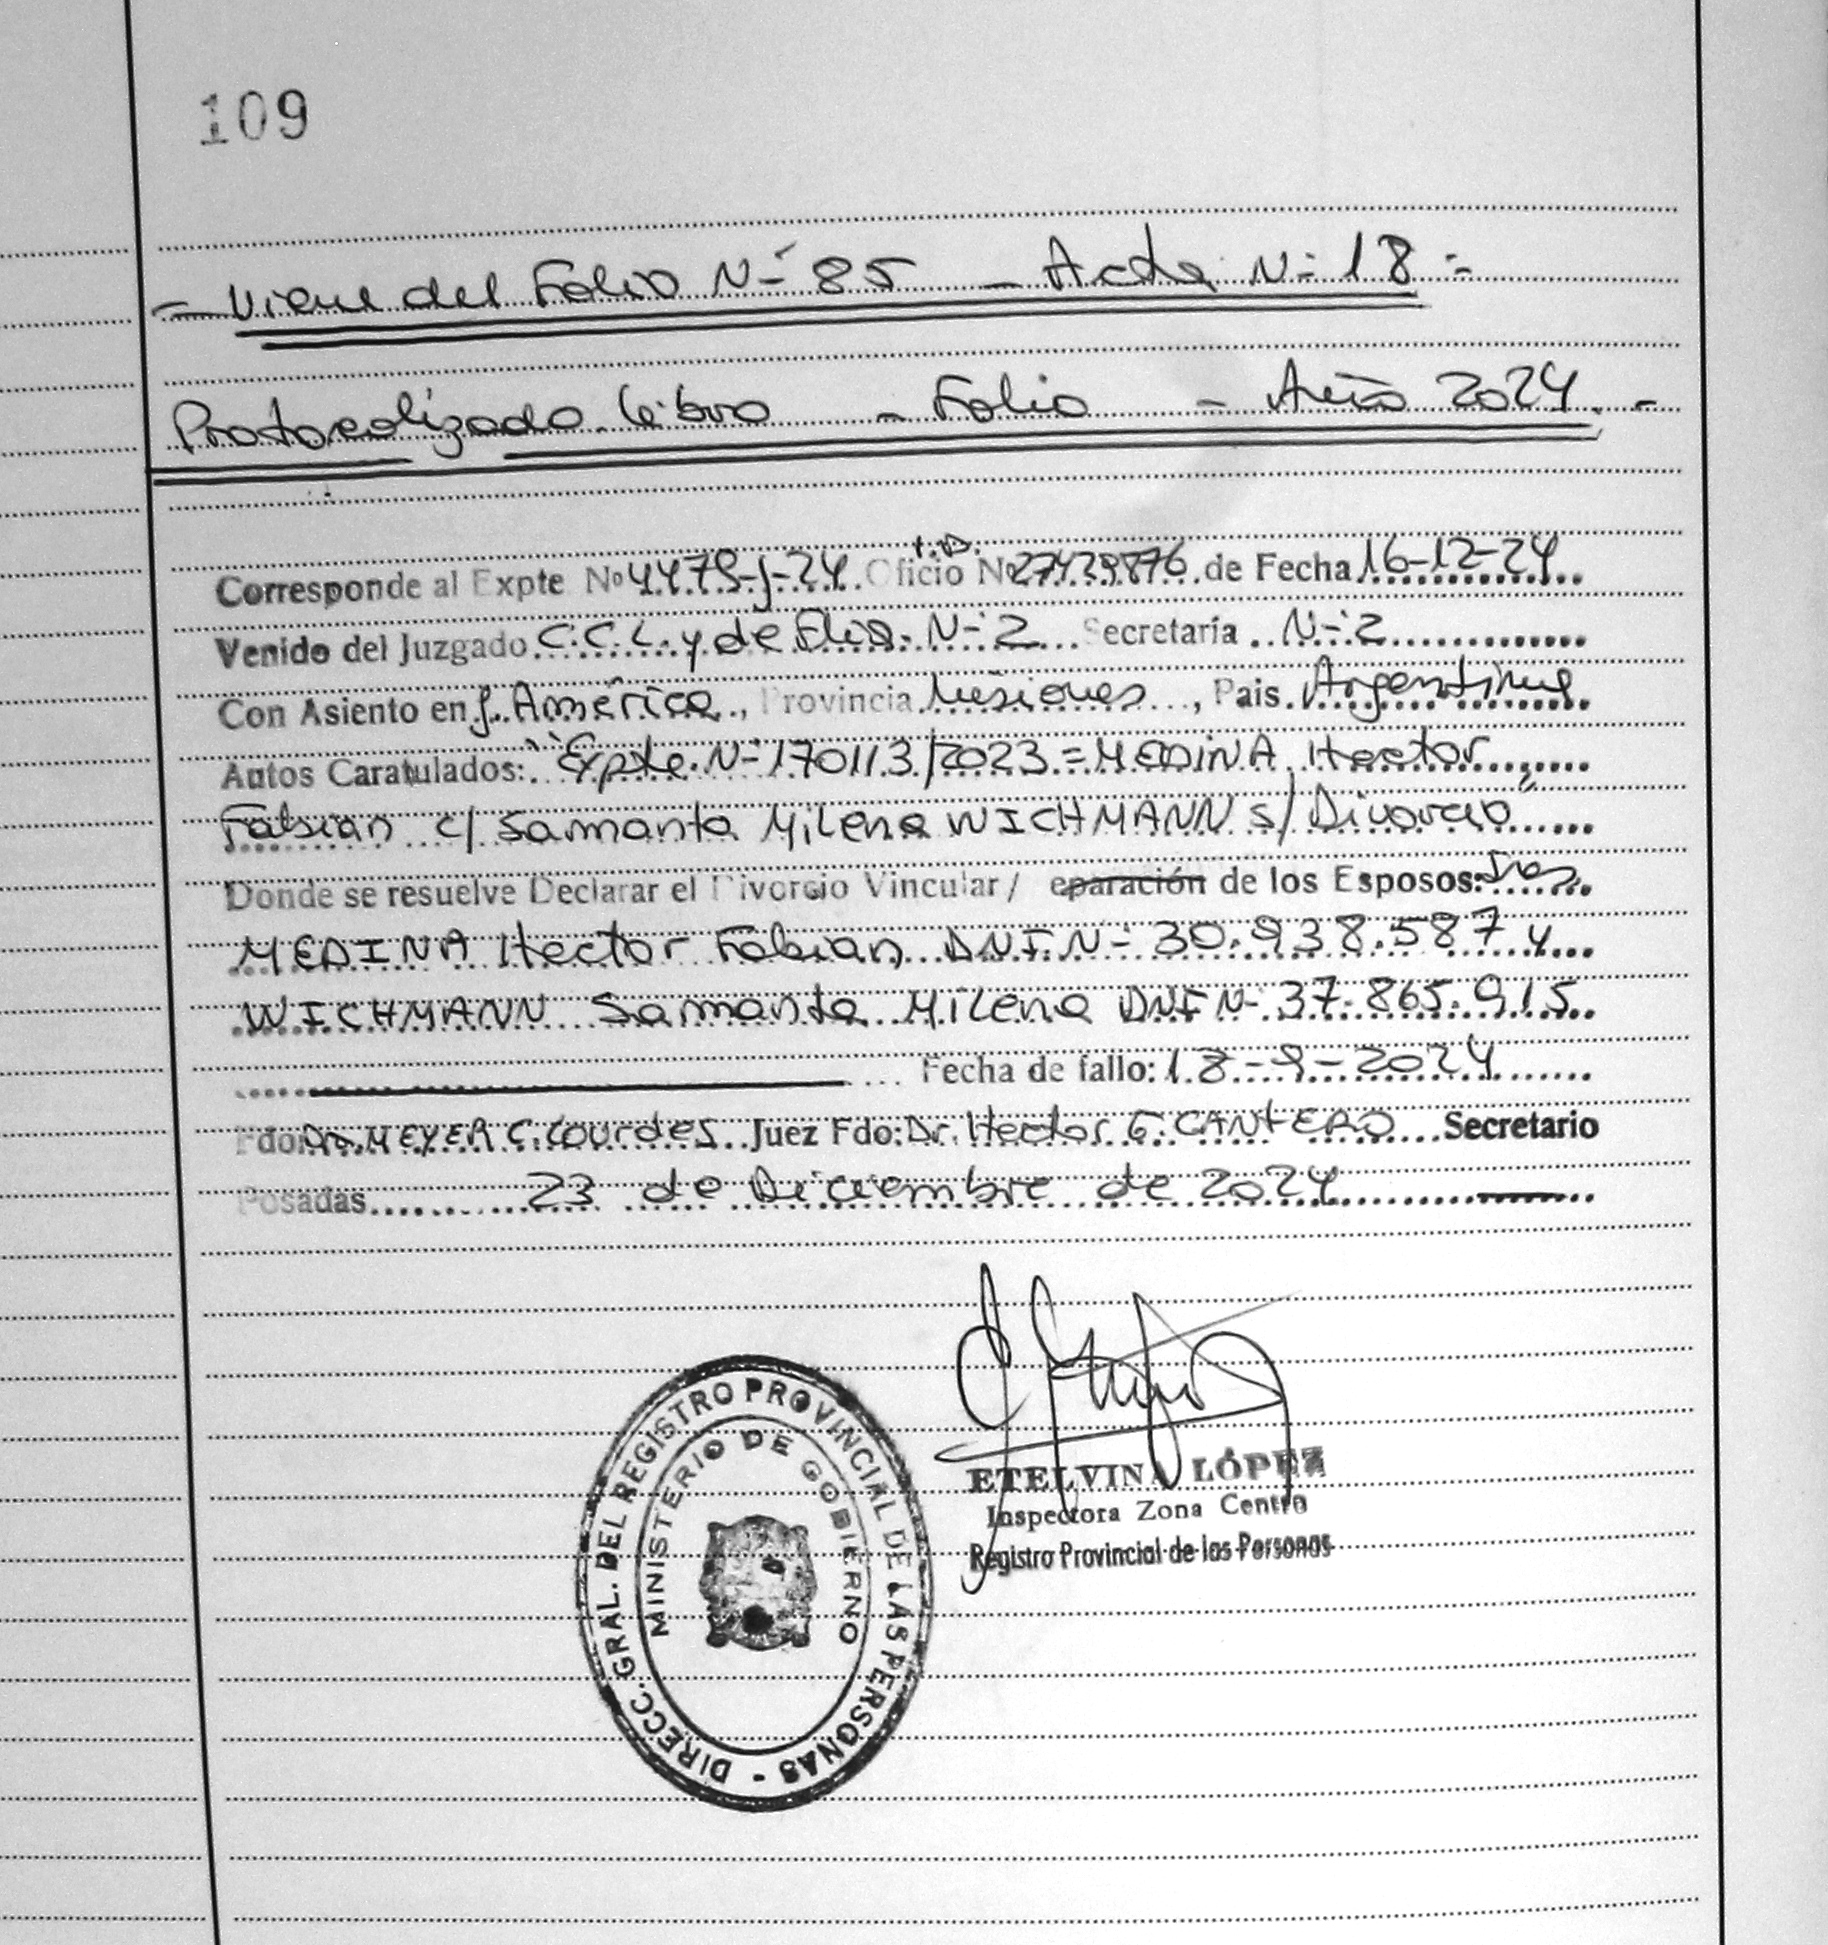 109
- Viene del Folio N-° 85 - Acta N-° 18 -
Protocolizado Libro - Folio - Año 2024. -
Corresponde al Expte Nº 4479-J-24. Oficio Nº 27429876 de Fecha 16-12-24
I.D.
Venido del Juzgado C.C.L. y de Flia. N-° 2 Secretaría N-° 2
Con Asiento en J. América, Provincia Misiones, Pais. Argentina
Autos Caratulados: "Expte. N-° 170113/2023 = MEDINA Hector
Fabian c/ Samanta Milena WICHMANN s/ Divorcio"
Donde se resuelve Declarar el Divorcio Vincular / eparación de los Esposos:
MEDINA Hector Fabian, DNI. N- 30.938.587 y
WICHMANN Samanta Milena DNI N- 37.865.915
Fecha de fallo: 18-9-2024
Fdo: Dra. MEYER C. Lourdes Juez Fdo: Dr. Hector G. CANTERO Secretario
Posadas 23 de Diciembre de 2024
DIRECC. GRAL. DEL REGISTRO PROVINCIAL DE LAS PERSONAS -
MINISTERIO DE GOBIERNO
ETELVINA LÓPEZ
Inspectora Zona Centro
Registro Provincial de las Personas